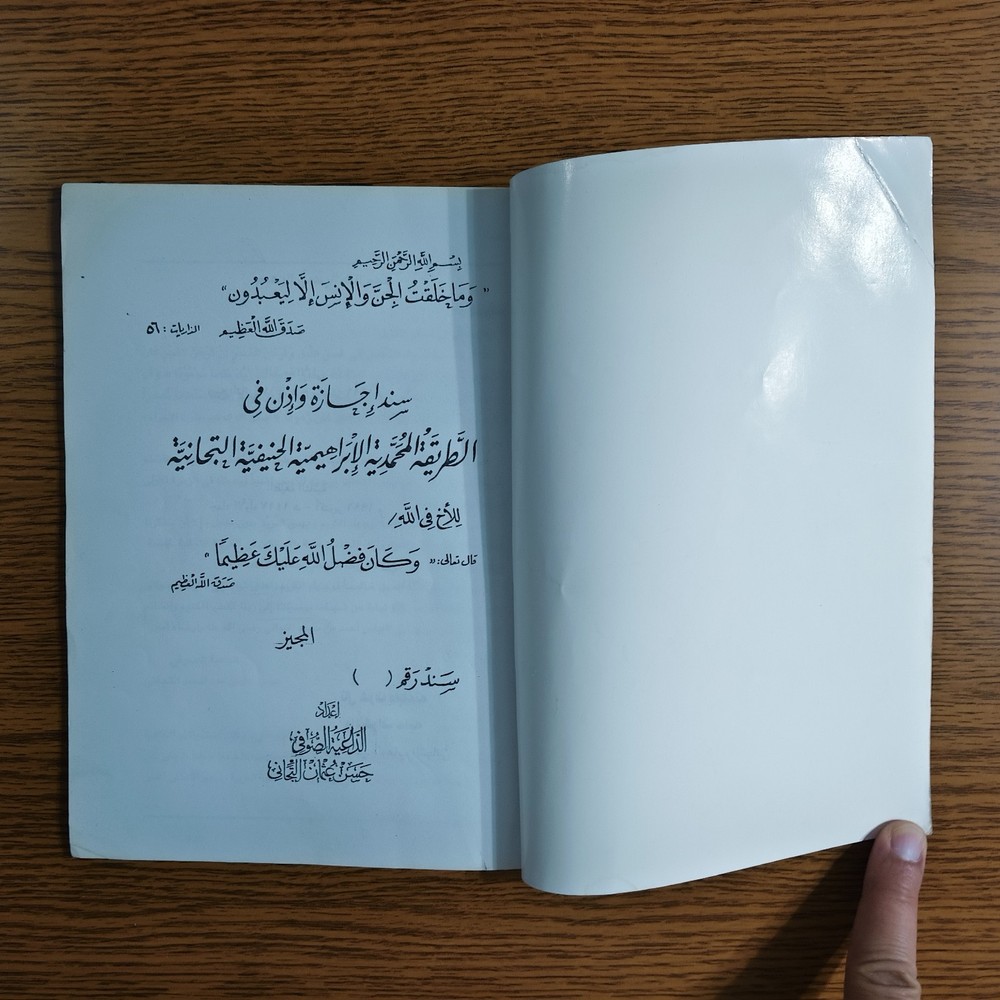 بِسْمِ اللَّهِ الرَّحْمَنِ الرَّحِيمِ
"وَمَا خَلَقْتُ الْجِنَّ وَالْإِنسَ إِلَّا لِيَعْبُدُونِ"
صَدَقَ اللَّهُ الْعَظِيم الذاريات : ٥٦
سند إِجَازَة وَإِذْن فِي
الطَّرِيقَةُ الْمُحَمَّدِيَّة الْإِبْرَاهِيمِيَّة الْحَنِيفِيَّة التِّجَانِيَّة
لِلأَخِ فِي اللَّهِ /
قال تعالى : " وَكَانَ فَضْلُ اللَّهِ عَلَيْكَ عَظِيمًا "
صَدَقَ اللَّهُ الْعَظِيم
المجيز
سَنَد رَقم ( )
إعْدَادُ
الدَّاعِيَة الصُّوفِي
حَسَن عُثْمَان التِّجَانِي